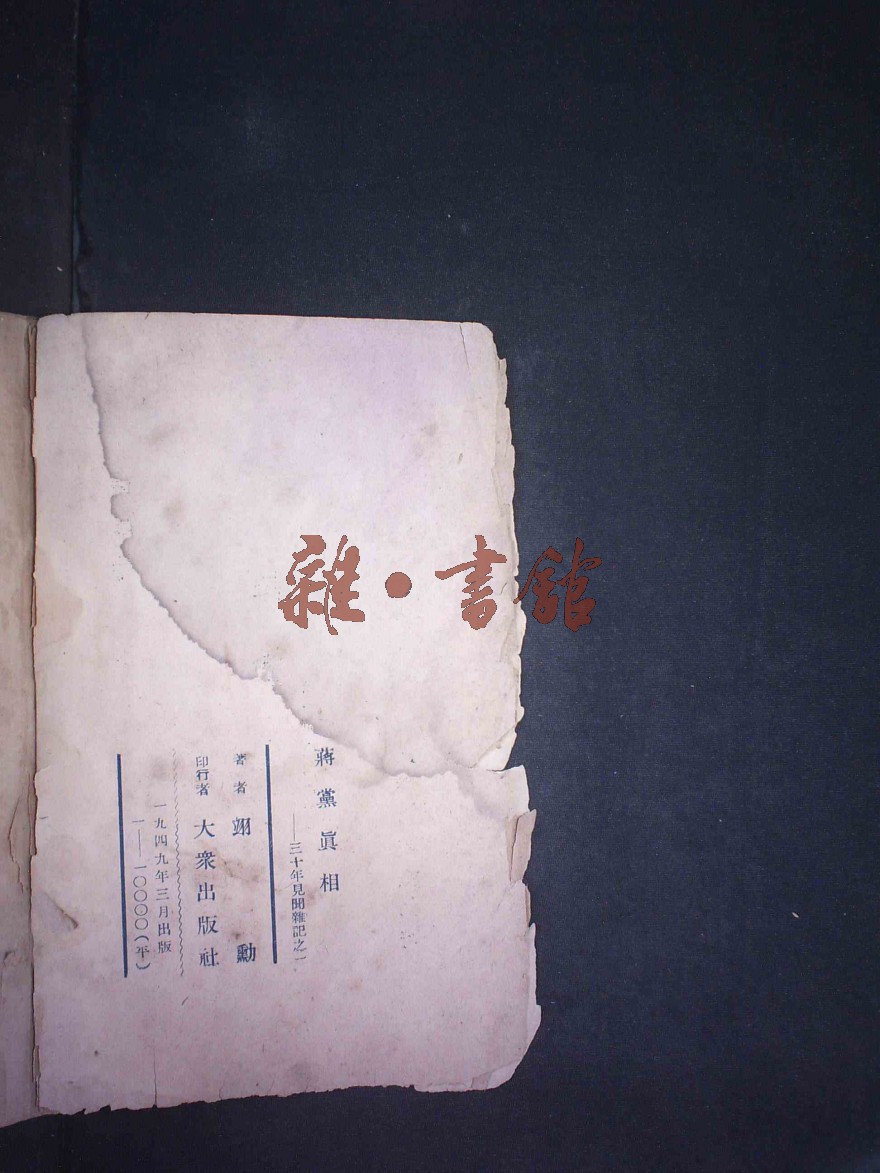 雜·書館
蔣黨眞相
——三十年見聞雜記之一
著者 翊勳
印行者 大衆出版社
一九四九年三月出版
一——一〇〇〇〇(平)